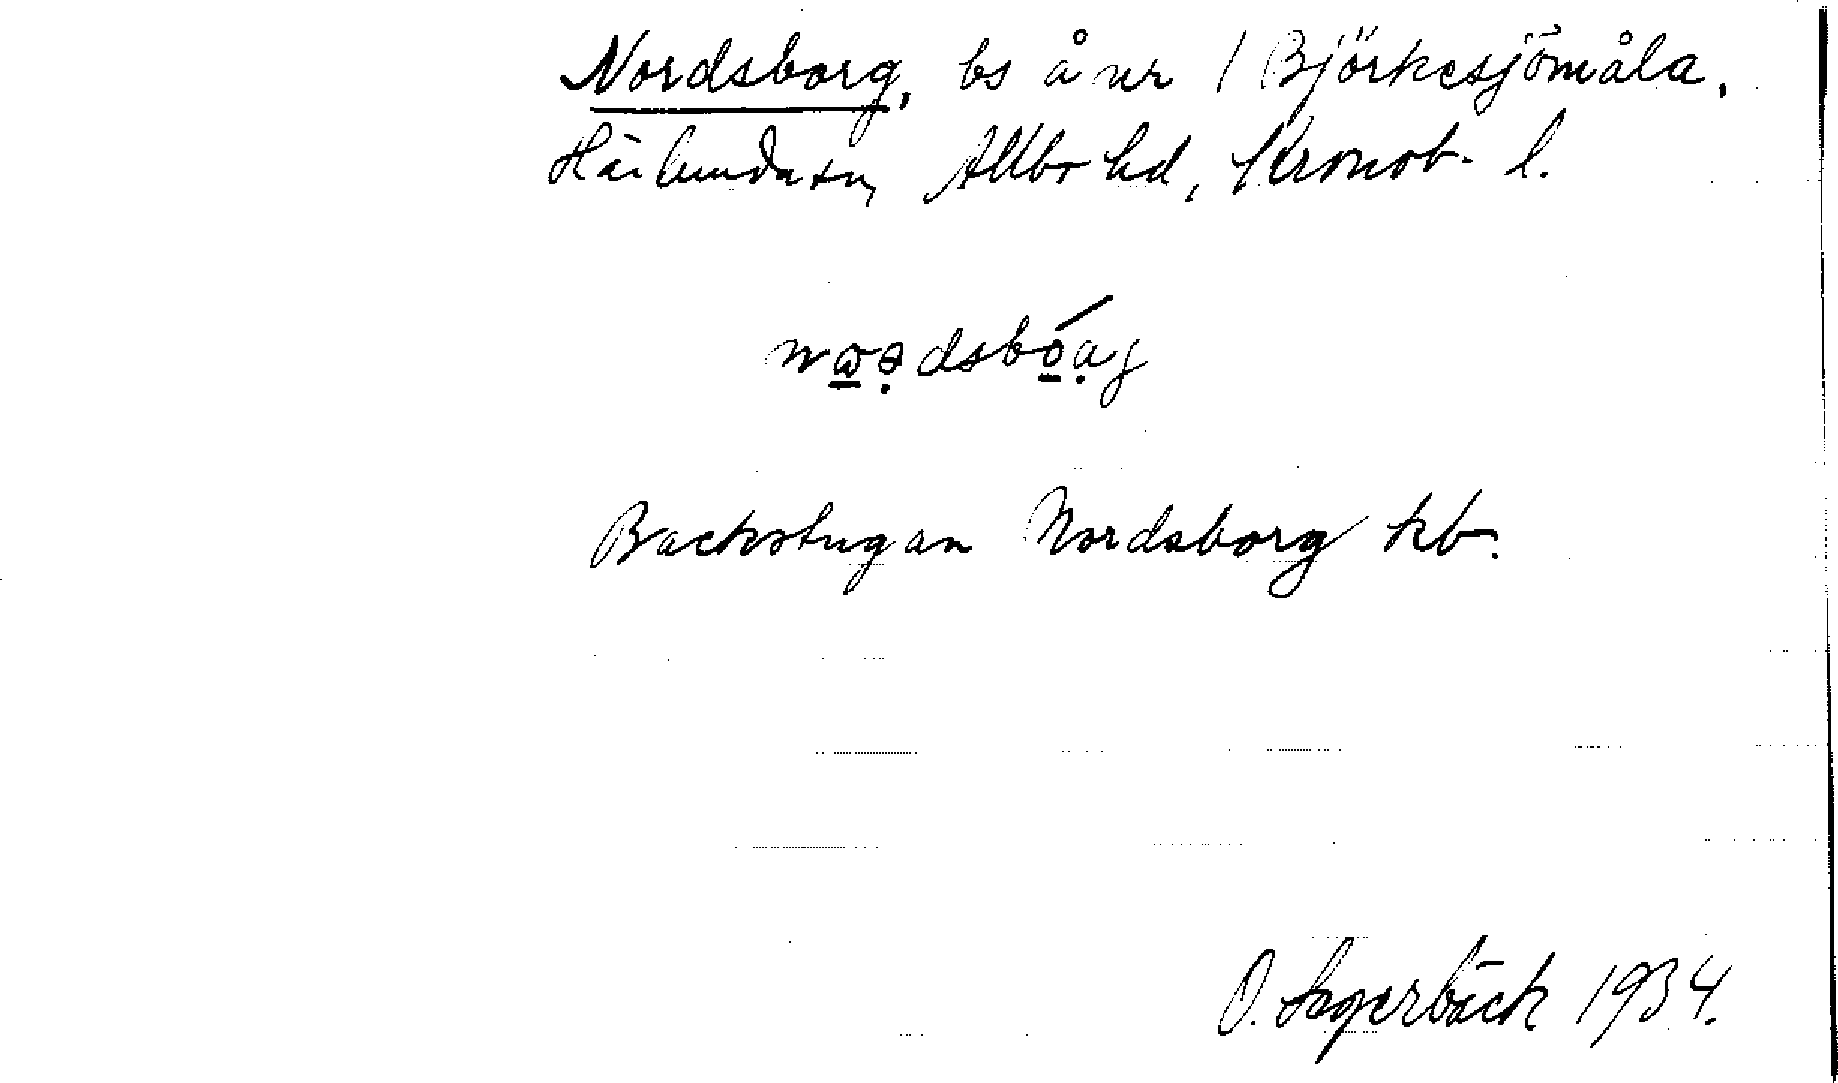 Nordsborg, bs å nr 1 Björkesjömåla,
Härlunda sn, Allbo hd, Kronob. l.
Backstugan Nordsborg kb.
O. Lagerbäck 1934.